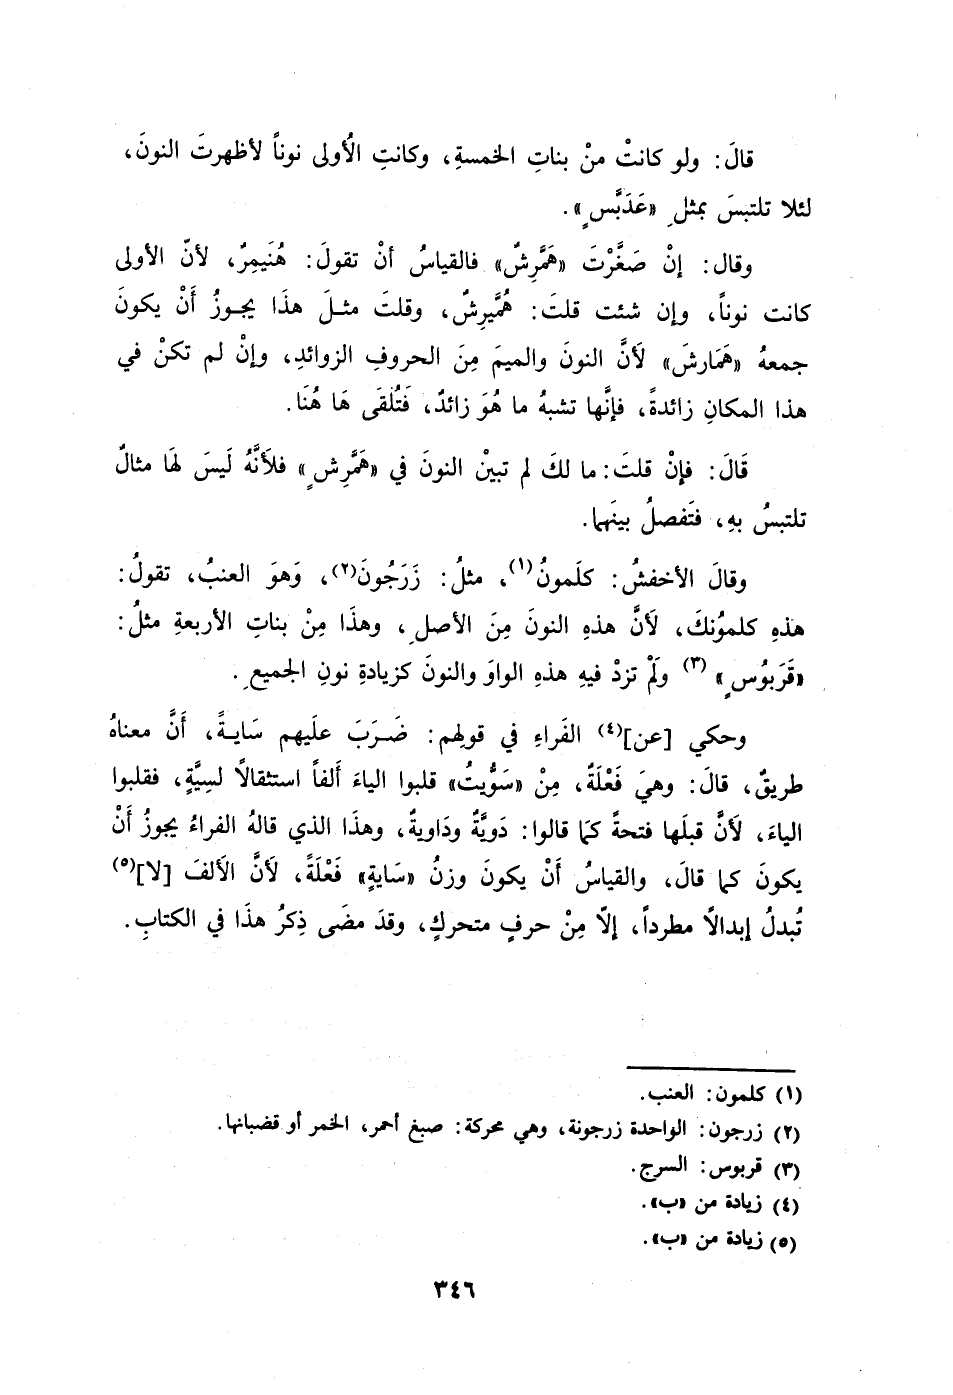 قالَ: ولو كانتْ منْ بناتِ الخمسةِ، وكانتِ الأُولى نوناً لأظهرتَ النونَ،
لئلا تلتبسَ بمثلِ «عَدَبَّسٍ».
وقال: إنْ صَغَّرْتَ «هَمَّرِشٌ» فالقياسُ أنْ تقولَ: هُنَيمِرٌ، لأنّ الأولى
كانت نوناً، وإن شئت قلتَ: هُمَّيرِشٌ، وقلتَ مثلَ هذَا يجوزُ أَنْ يكونَ
جمعهُ «هَمَارشَ» لَأنَّ النونَ والميمَ مِنَ الحروفِ الزوائدِ، وإنْ لم تكنْ في
هذا المكانِ زائدةً، فإنَّها تشبهُ ما هُوَ زائدٌ، فَتُلْقَى هَا هُنَا.
قَالَ: فإنْ قلتَ: ما لكَ لم تبينْ النونَ في «هَمَّرِشٍ» فلأنَّهُ لَيسَ لهَا مثالٌ
تلتبسُ بهِ، فتَفصلُ بينَهما.
وقالَ الأخفشُ: كلَمونُ(١)، مثلُ: زَرَجُونَ(٢)، وَهوَ العنبُ، تقولُ:
هذهِ كلموُنكَ، لَأنَّ هذهِ النونَ مِنَ الأصلِ، وهذَا مِنْ بناتِ الأربعةِ مثلُ:
«قَرَبوُسٍ» (٣) ولَمْ تزدْ فيهِ هذهِ الواوَ والنونَ كزيادةِ نونِ الجميعِ.
وحكي [عن](٤) الفَراءِ في قولِهم: ضَرَبَ علَيهم سَايةً، أَنَّ معناهُ
طريقٌ، قالَ: وهيَ فَعْلَةٌ، مِنْ «سَوَّيتُ» قلبوا الياءَ أَلفاً استثقالاً لسِيَّةٍ، فقلبوا
الياءَ، لَأنَّ قبلَها فتحةً كمَا قالوا: دَويَّةٌ ودَاويةٌ، وهذَا الذي قالهُ الفراءُ يجوزُ أَنْ
يكونَ كما قالَ، والقياسُ أَنْ يكونَ وزنُ «سَايةٍ» فَعْلَةً، لَأنَّ الأَلفَ [لا](٥)
تُبدلُ إبدالاً مطرداً، إلاّ مِنْ حرفٍ متحركٍ، وقدَ مضَى ذِكرُ هذَا في الكتابِ.
(١) كلمون: العنب.
(٢) زرجون: الواحدة زرجونة، وهي محركة: صبغ أحمر، الخمر أو قضبانها.
(٣) قربوس: السرج.
(٤) زيادة من «ب».
(٥) زيادة من «ب».
٣٤٦